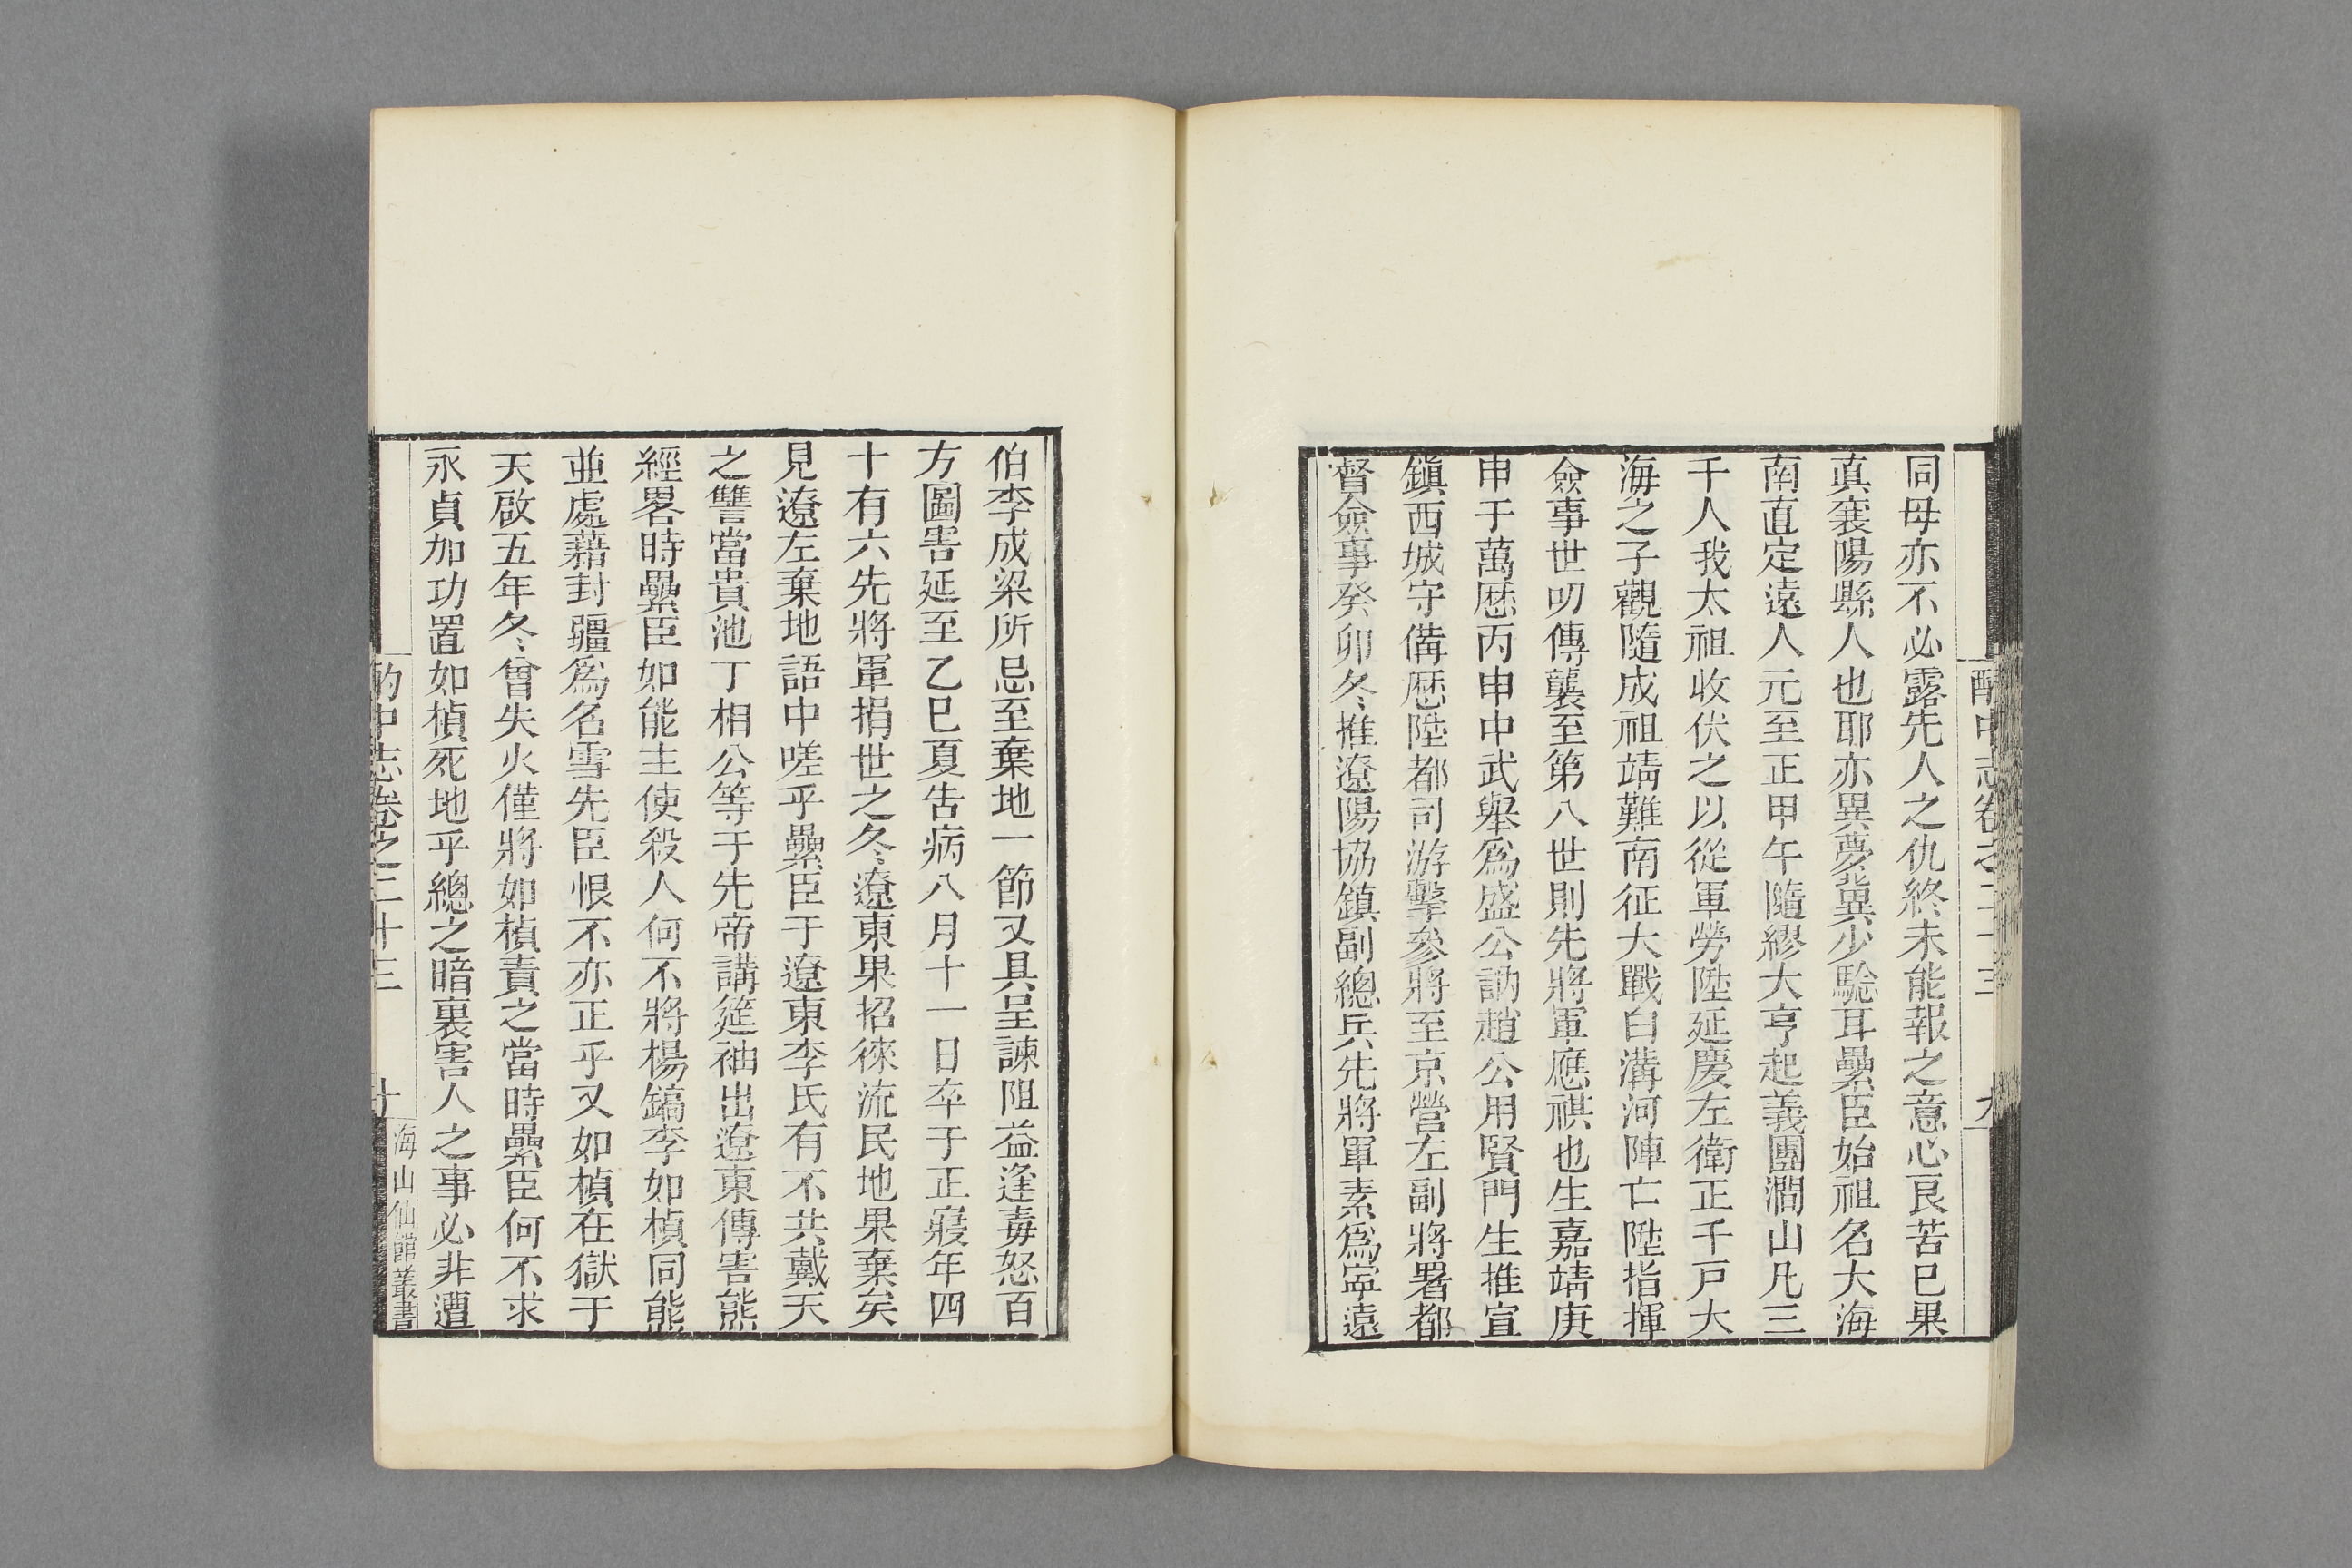 酌中志卷之二十三 九
同母亦不必露先人之仇終未能報之意心艮苦巳果
真襄陽縣人也耶亦異夢冀少騐耳纍臣始祖名大海
南直定遠人元至正甲午隨繆大亨起義團澗山凡三
千人我太祖收伏之以從軍勞陞延慶左衛正千戸大
海之子觀隨成祖靖難南征大戰白溝河陣亡陞指揮
僉事世叨傳襲至第八世則先將軍應祺也生嘉靖庚
申于萬厯丙申中武舉爲盛公訥趙公用賢門生推宣
鎮西城守備厯陞都司游擊參將至京營左副將署都
督僉事癸卯冬推遼陽協鎮副總兵先將軍素爲寜遠
伯李成梁所忌至棄地一節又具呈諫阻益逢毒怒百
方圖害延至乙巳夏告病八月十一日卒于正寢年四
十有六先將軍捐世之冬遼東果招徠流民地果棄矣
見遼左棄地語中嗟乎纍臣于遼東李氏有不共戴天
之讐當貴池丁相公等于先帝講筵袖出遼東傳害熊
經畧時纍臣如能主使殺人何不將楊鎬李如楨同熊
並處藉封疆爲名雪先臣恨不亦正乎又如楨在獄于
天啟五年冬曾失火僅將如楨責之當時纍臣何不求
永貞加功置如楨死地乎總之暗裏害人之事必非遭
酌中志卷之二十三 十
海山仙館叢書